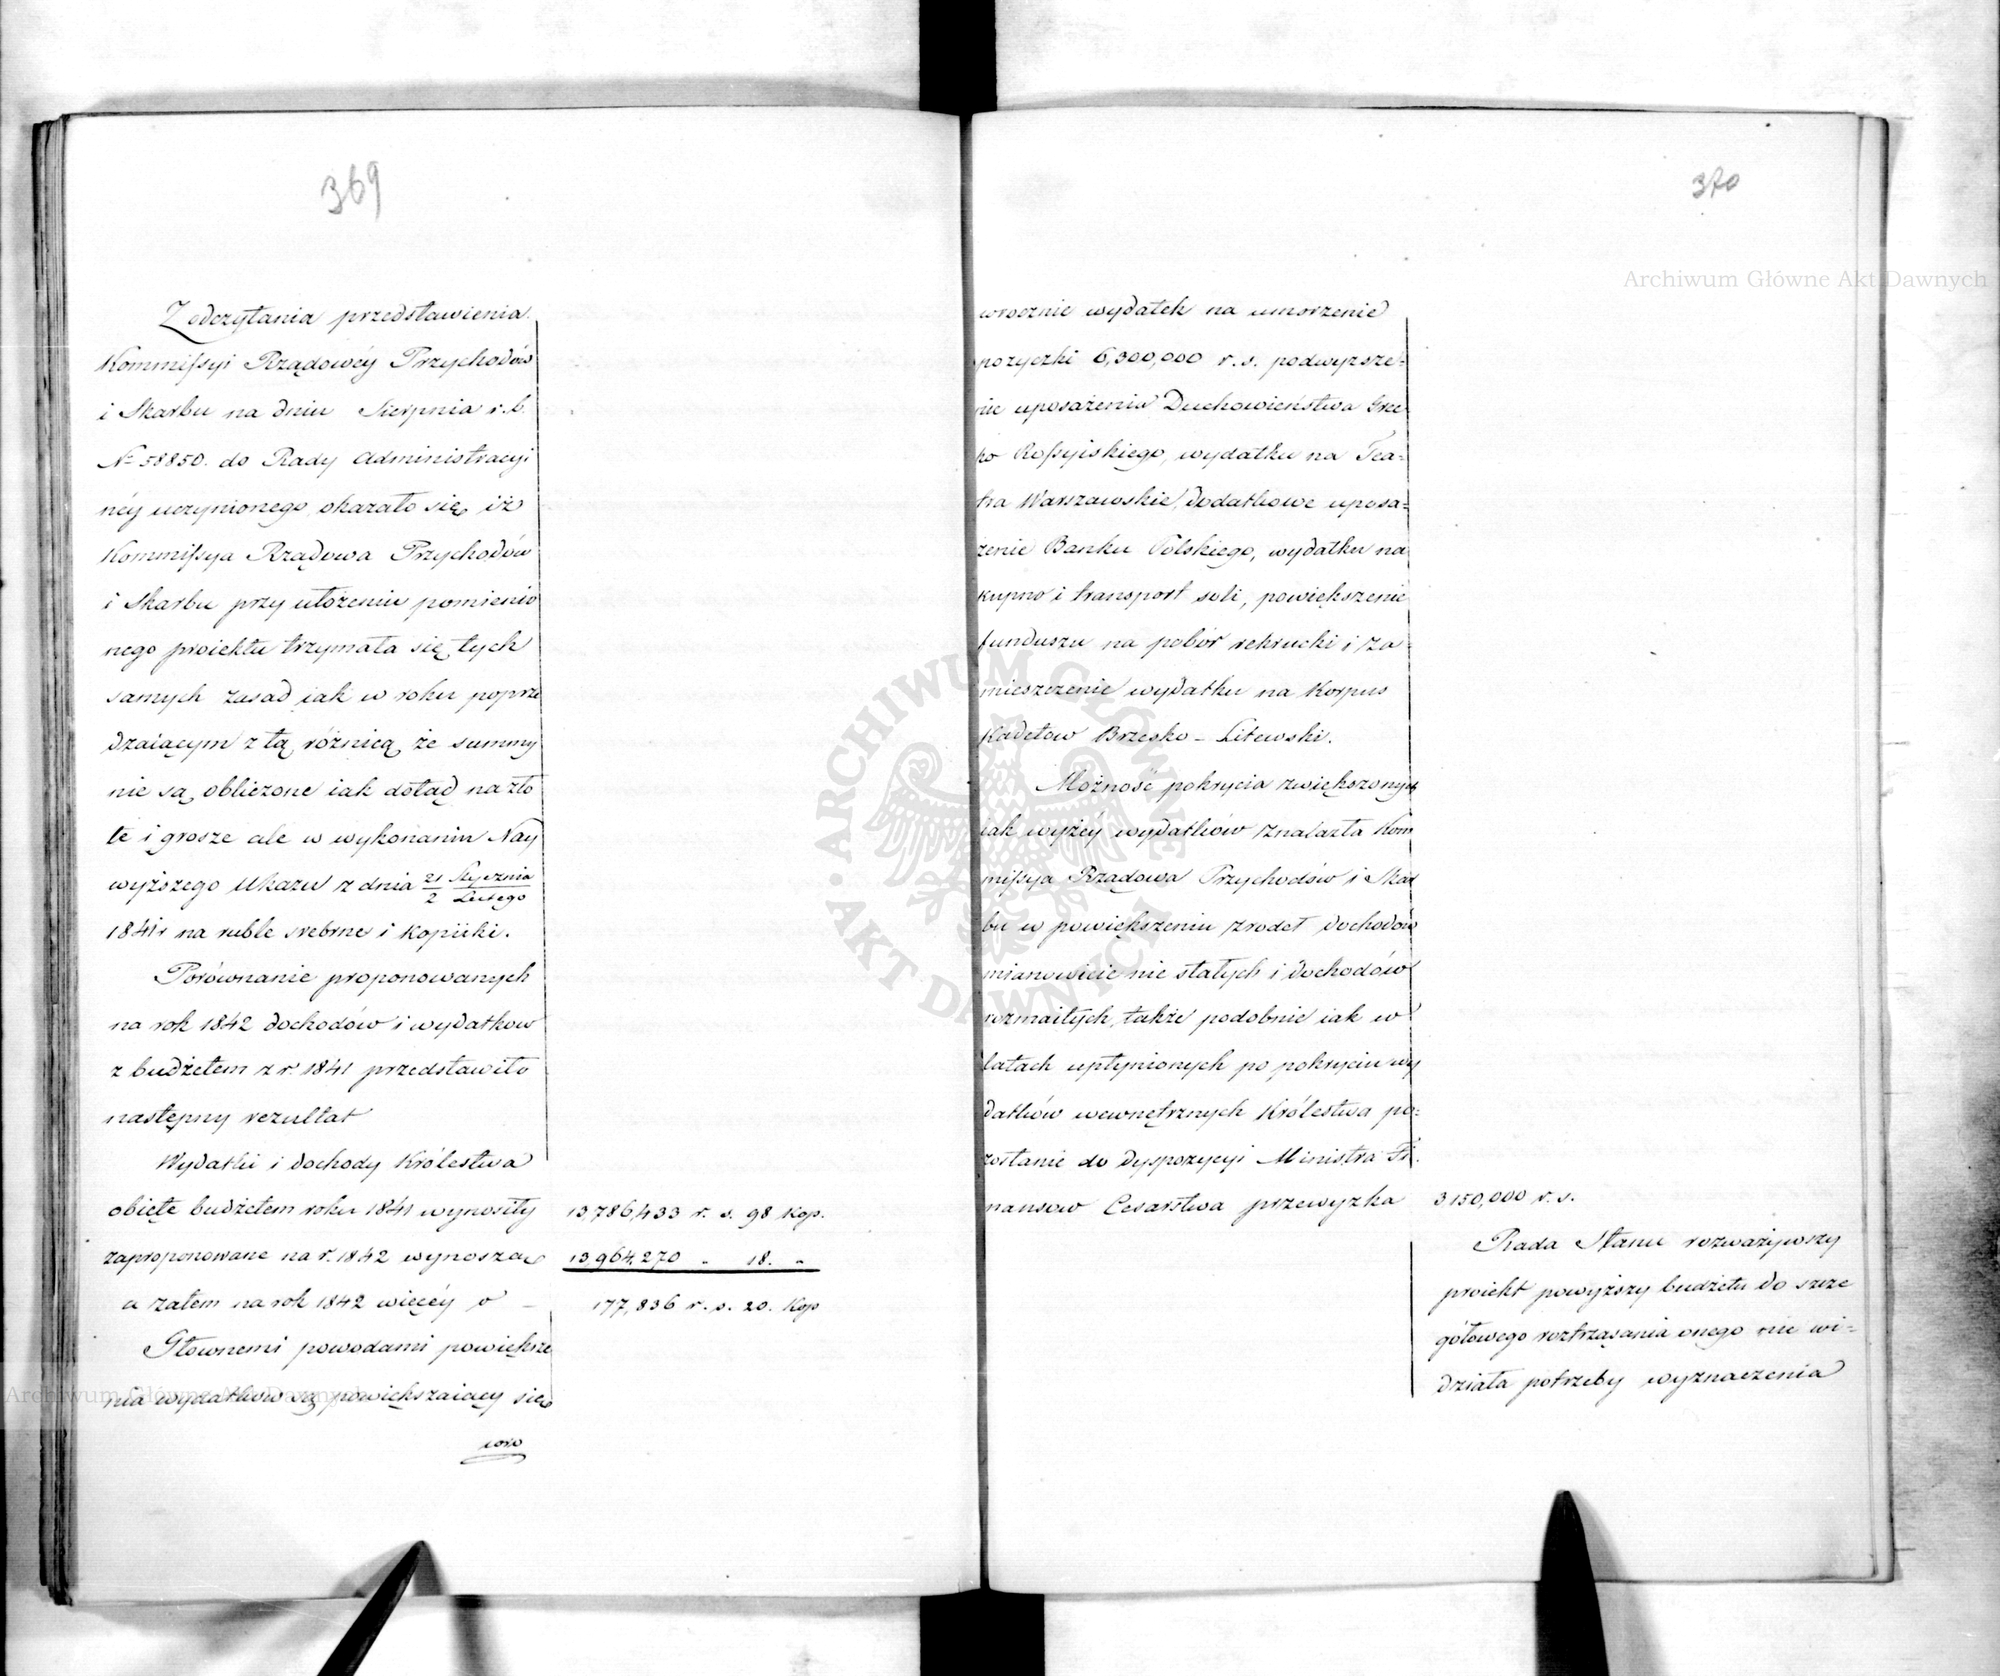 369
Z odczytania przedstawienia
Kommissyi Rządowéy Przychodów
i Skarbu na dniu Sierpnia r. b.
№ 58850. do Rady Administracyi
néy uczynionego, okazało się iż
Kommissya Rządowa Przychodów
i Skarbu przy ułożeniu pomienio
nego proiektu trzymała się tych
samych zasad iak w roku poprze
dzaiącym z tą różnicą że summy
nie są obliczone iak dotąd na zło
te i grosze ale w wykonaniu Nay
wyższego Ukazu z dnia 21 Stycznia / 2 Lutego
1841 r na ruble srebrne i kopiieki.
Porównanie proponowanych
na rok 1842 dochodów i wydatkow
z budżetem z r. 1841 przedstawiło
następny rezultat
Wydatki i dochody Królestwa
obięte budżetem roku 1841 wynosiły 13,786,433 r. s. 98 Kop.
zaproponowane na r. 1842 wynoszą 13,964,270 " 18. "
a zatem na rok 1842 więcéy o – 177,836 r. s. 20. Kop
Głownemi powodami powiększe
nia wydatkow są powiększaiący się
coro
370
wrocznie wydatek na umorzenie
pożyczki 6,300,000 r. s. podwyzsze=
nie uposażenia Duchowieństwa Grec
ko Rossyiskiego, wydatku na Tea=
tra Warszawskie, dodatkowe uposa=
żenie Banku Polskiego, wydatku na
kupno i transport soli, powiększenie
funduszu na pobór rekrucki i za=
mieszczenie wydatku na Korpus
Kadetow Brzesko – Litewski.
Możność pokrycia zwiększonych
iak wyżéy wydatków znalazła Kom
missya Rządowa Przychodów i Skar
bu w powiększeniu zrodeł dochodów
mianowicie nie stałych i dochodów
rozmaitych, także podobnie iak w
latach upłynionych po pokryciu wy
datków wewnętrznych Królestwa po=
zostanie do dyspozycyi Ministra Fi.
nansow Cesarstwa przewyzka 3 150,000 r. s.
Rada Stanu rozważywszy
proiekt powyższy budżetu do szcze
gółowego roztrząsania onego nie wi=
działa potrzeby wyznaczenia
Archiwum Główne Akt Dawnych
Archiwum Główne Akt Dawnych
ARCHIWUM GŁÓWNE · AKT DAWNYCH ·